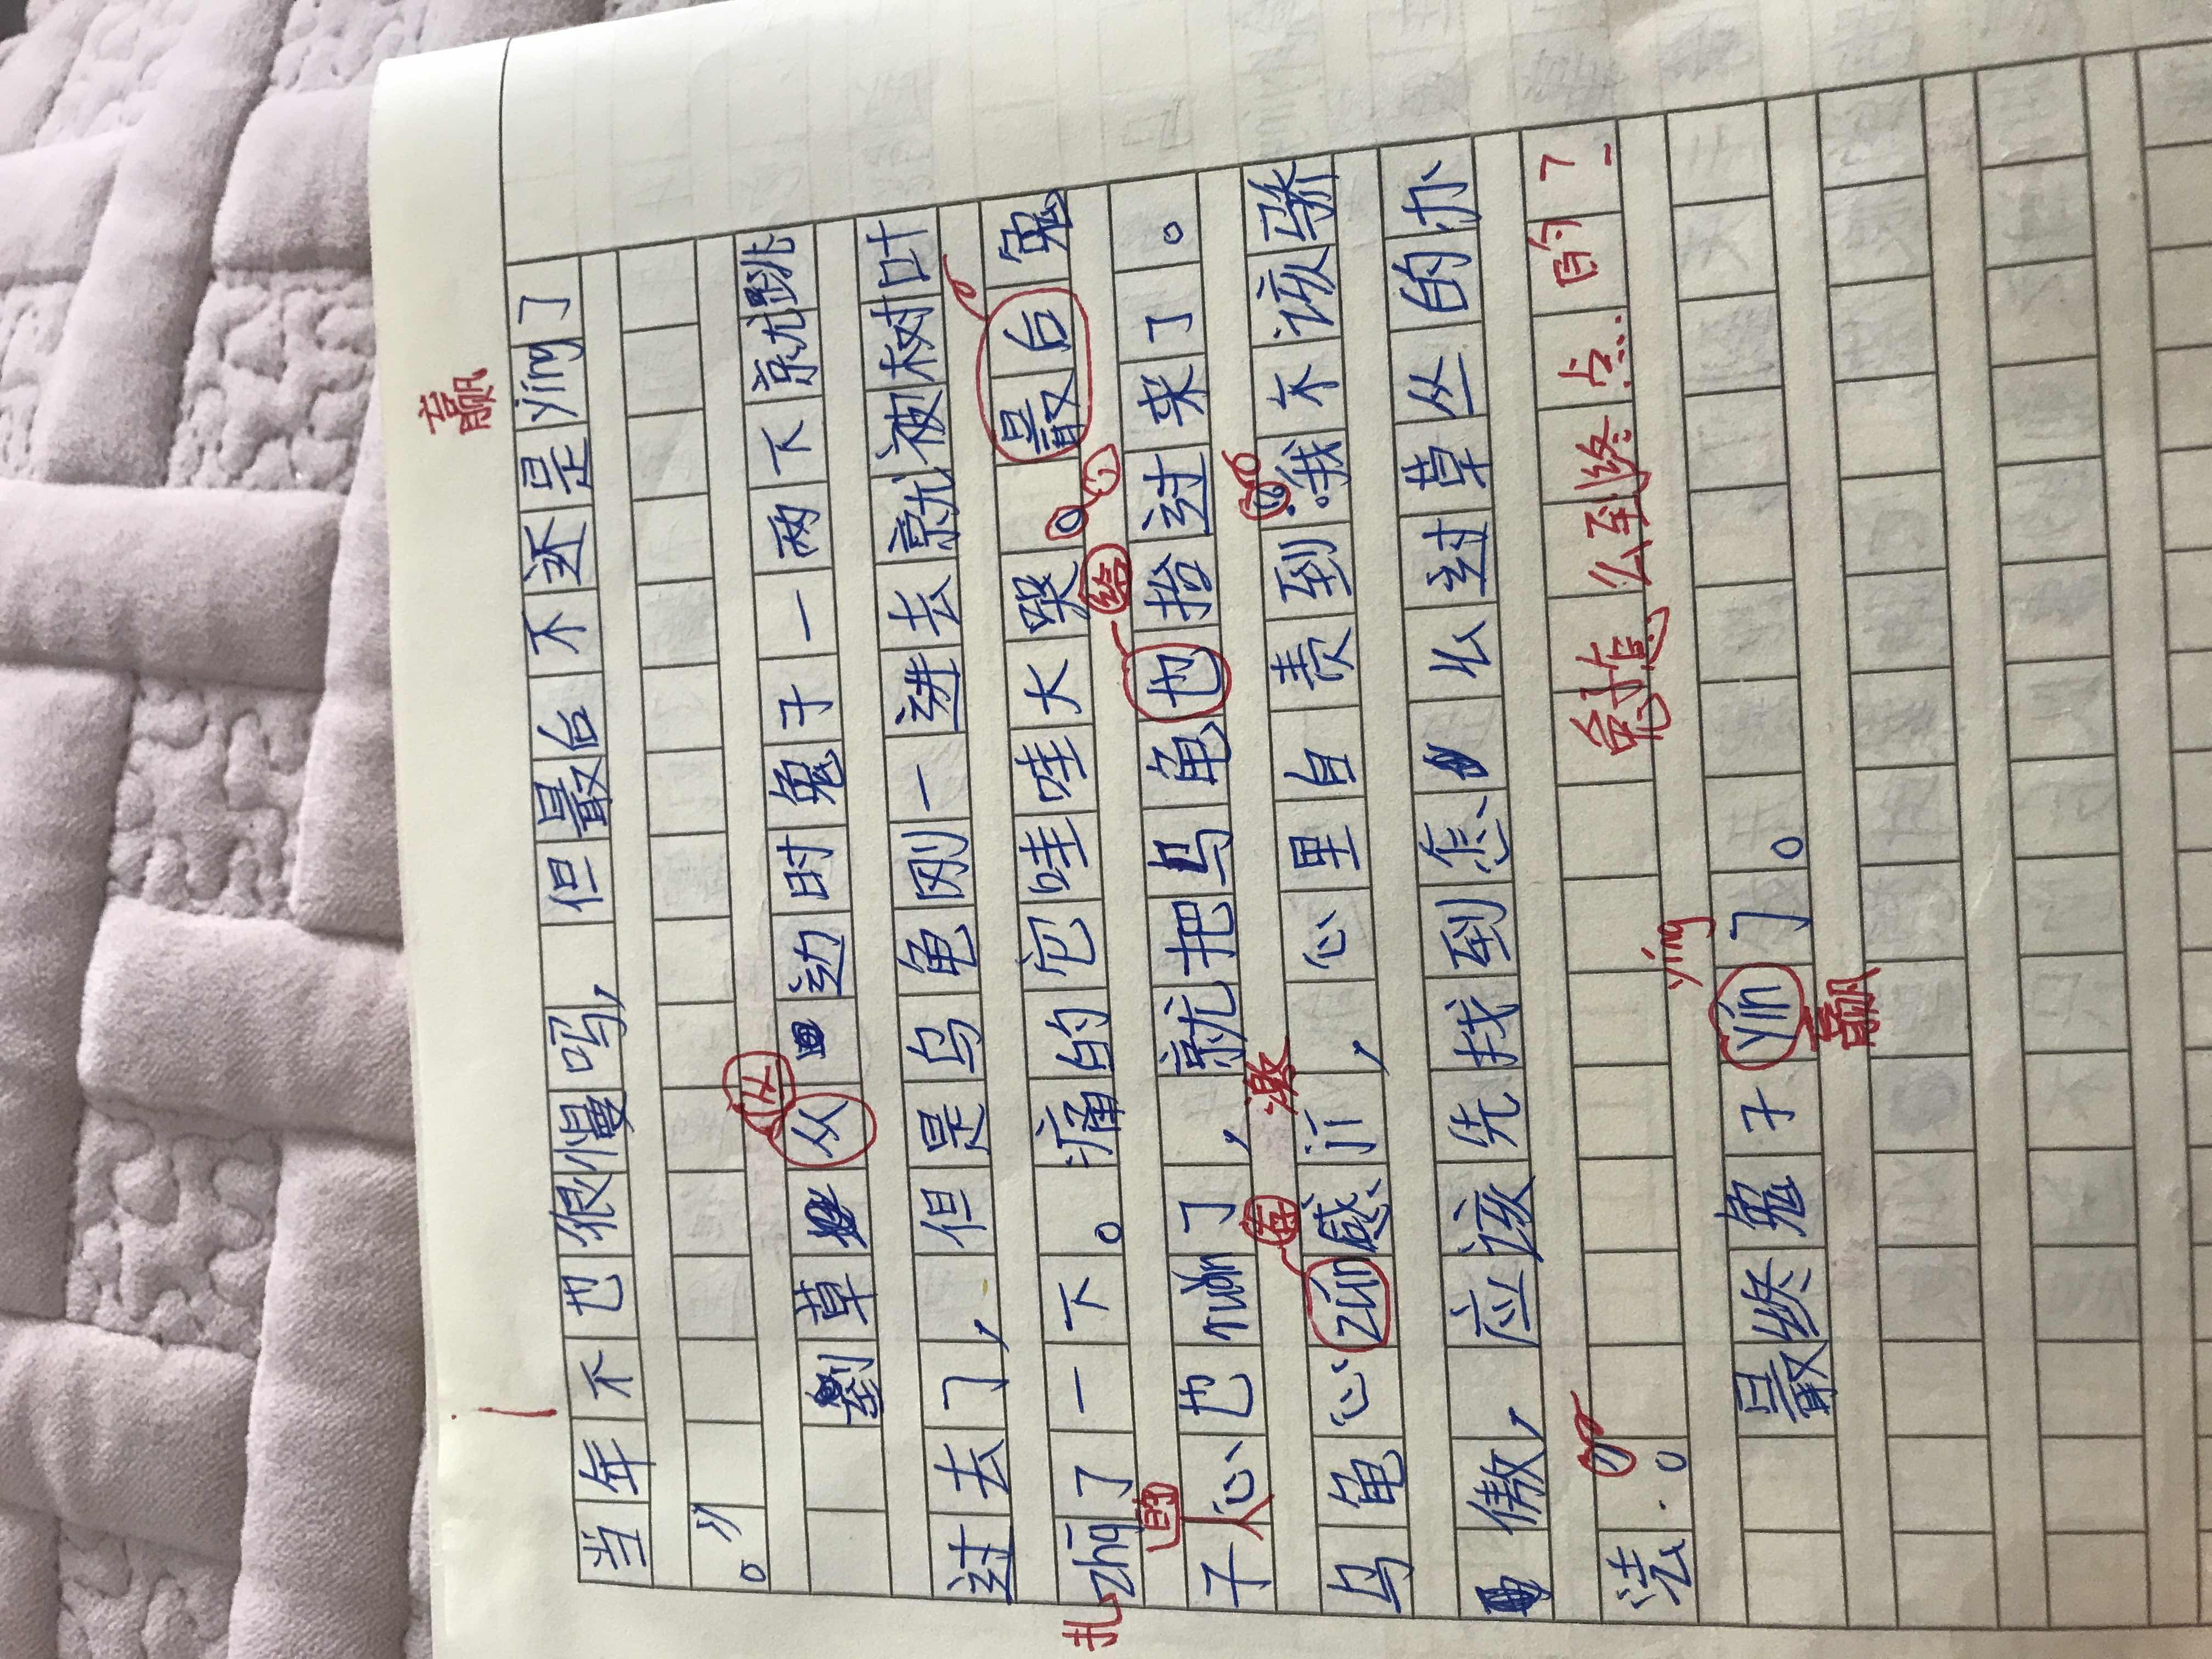 赢
当年不也很慢吗,但最台不还是yíng了
。”
到草丛边时兔子一两下就跳
丛
过去了,但是乌龟刚一进去就被树叶
zhā了一下。痛的它哇哇大哭。最台兔
扎
的
给
子心也ruǎn了,就把乌龟也抬过来了。
乌龟心zun感激,心里自责到:我不该骄
激
傲,应该先找到怎么过草丛的办
法。
兔子是怎么到终点的?
最终兔子yín了。
yíng
赢